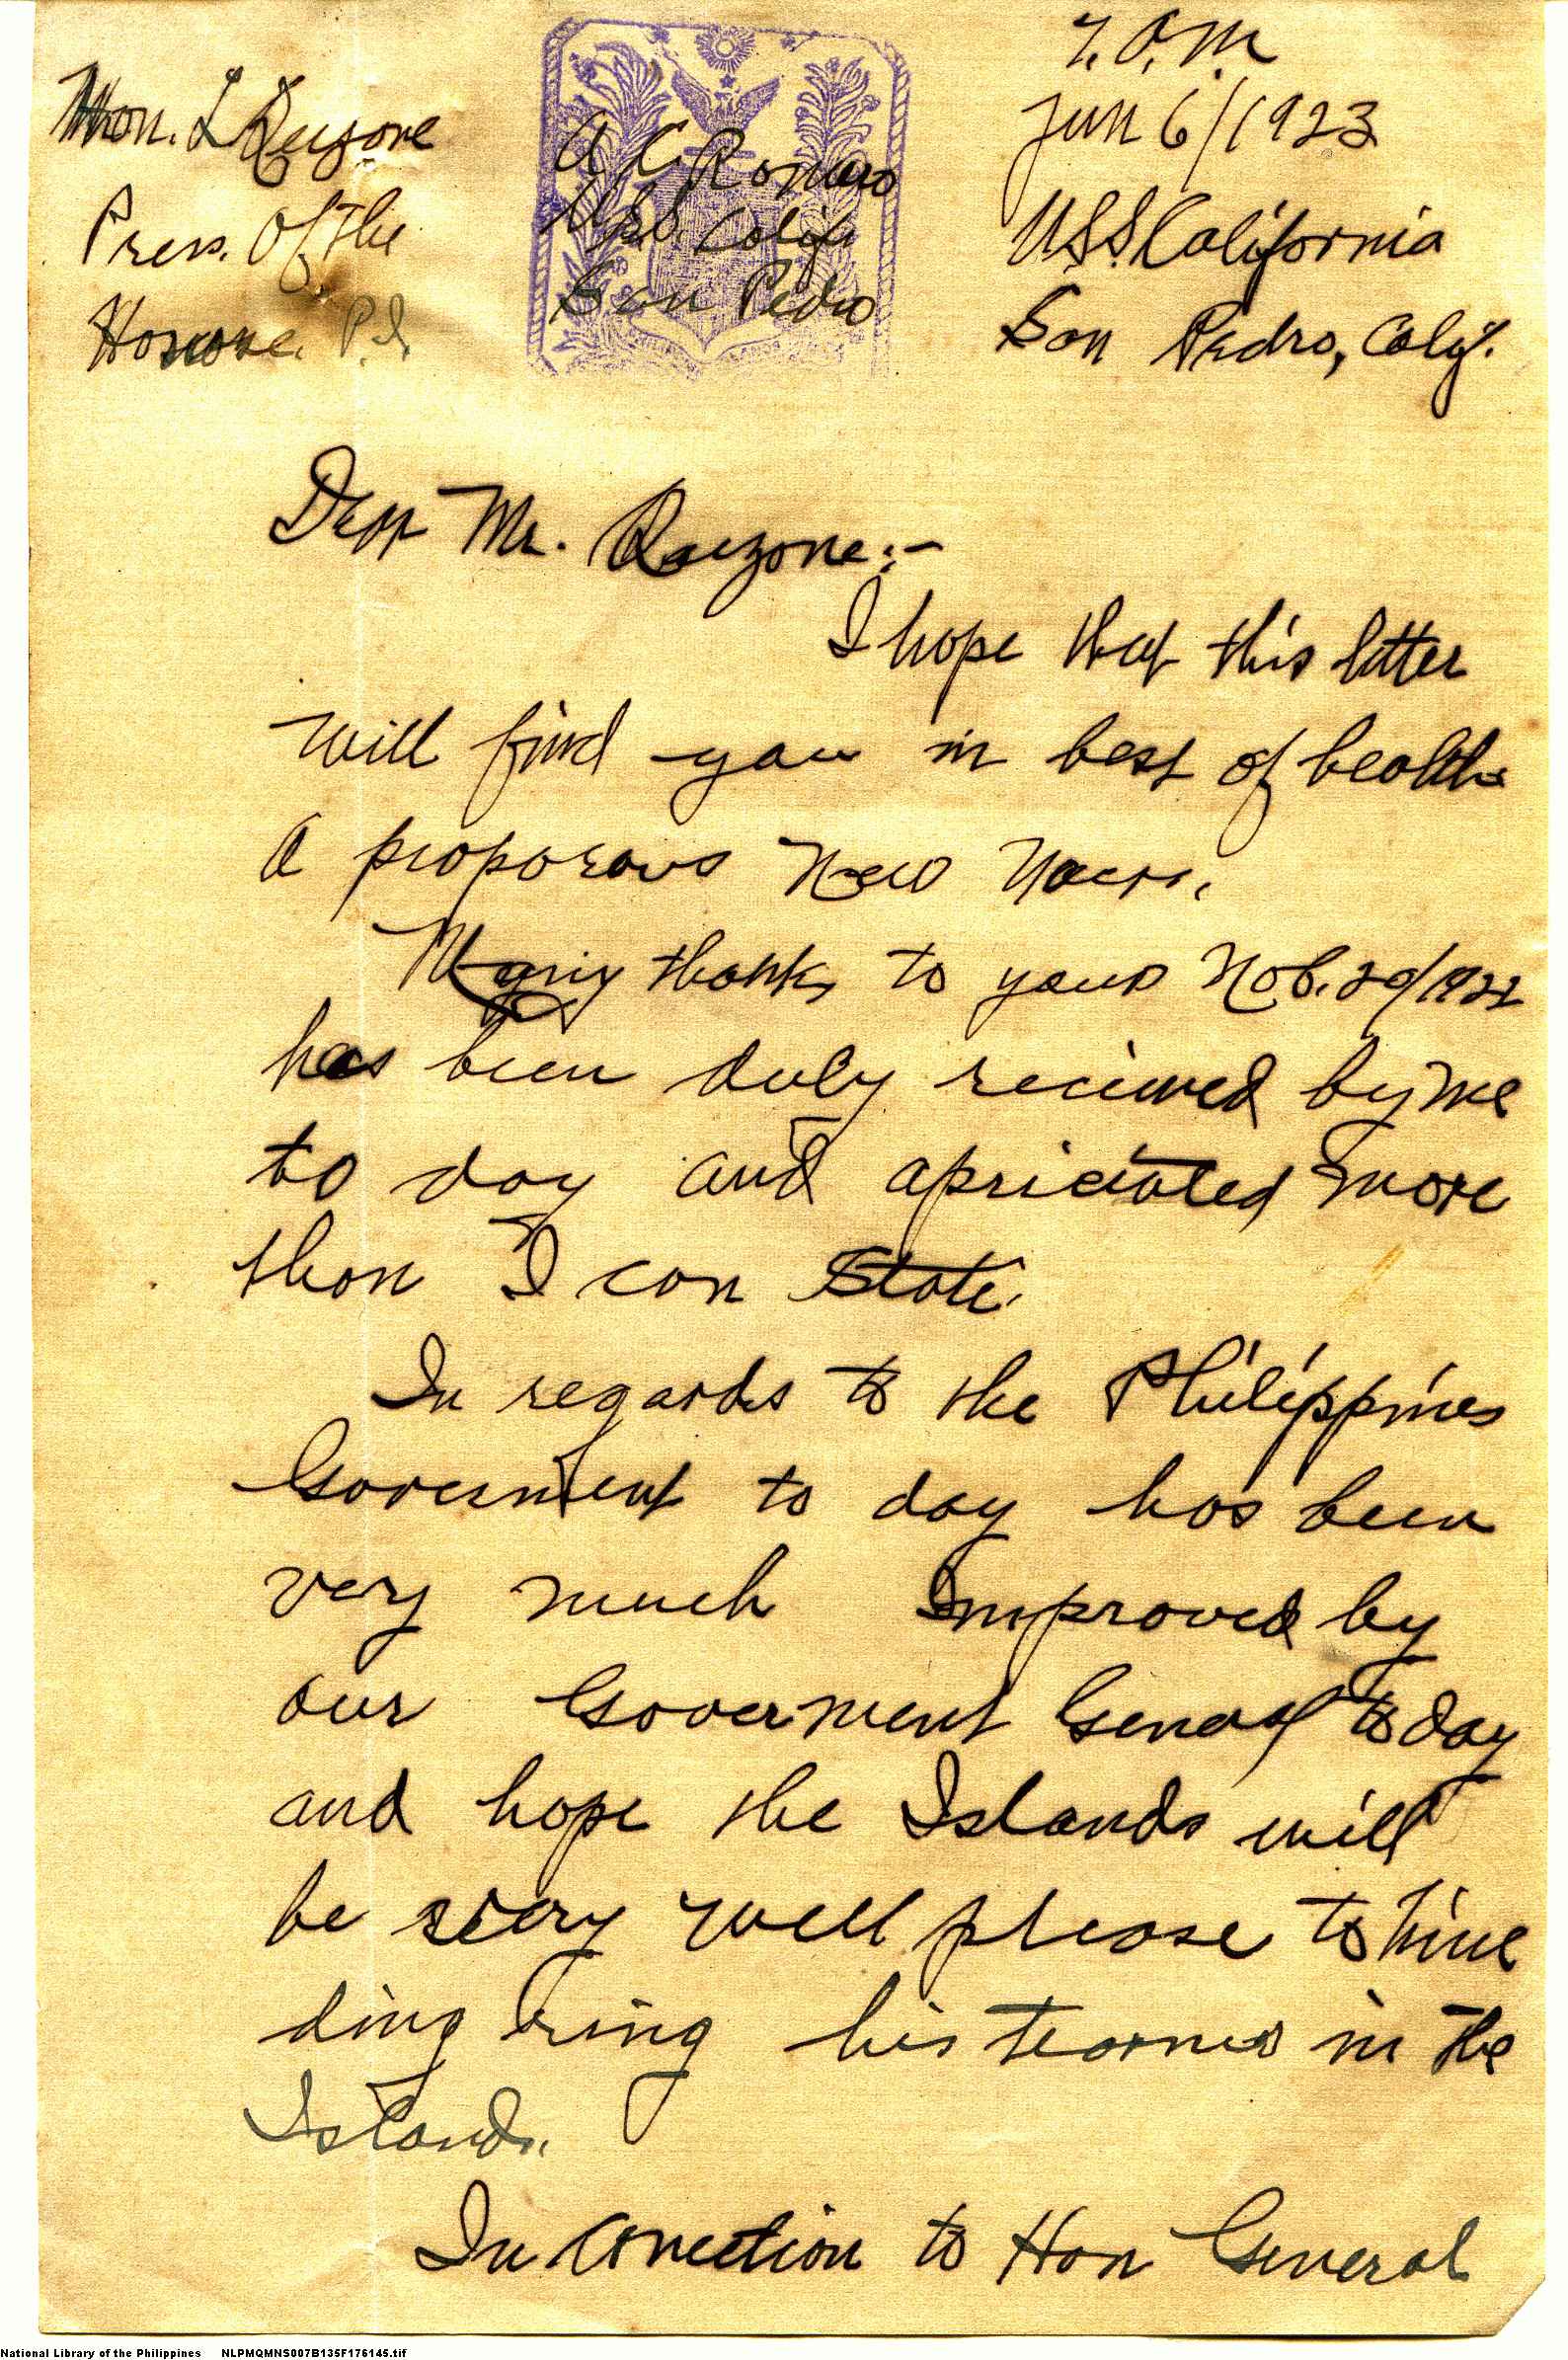 Hon. L Quezone
Pres. Of The
P.I.
A. C. Romero
U.S.S. Calif.
San Pedro
Y.O.M.
Jan 6/1923
U.S.S. California
San Pedro, Calif.
Dear Mr. Quezone:-
I hope that this letter
will find you in best of health
A proporous New Year.
Many thanks to yours Nob. 20/1922
has been duly recieved by me
to day and apriciated more
than I can State.
In regards to the Philippines
Goverment to day has been
very much Improved by
our Goverment General to day
and hope the Islands will
be very well please to hime
ding ring his tearms in the
Islands.
In Conection to Hon General
National Library of the Philippines NLPMQMNS007B135F176145.tif